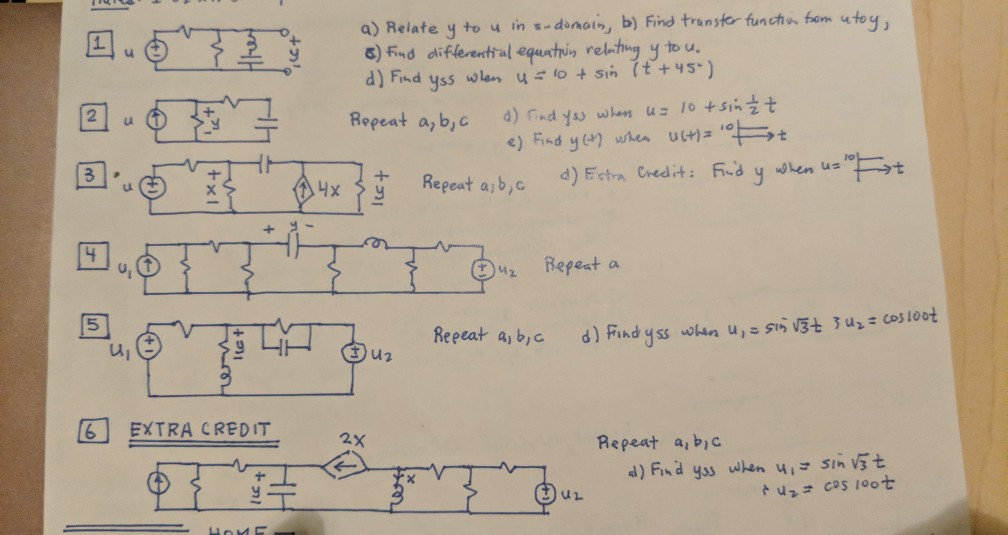 1 u + y - a) Relate y to u in s-domain, b) Find transfer function from u to y,
c) Find differential equation relating y to u.
d) Find yss when u = 10 + sin (t + 45°)
2 u + y - Repeat a, b, c d) Find yss when u = 10 + sin ½ t
e) Find y(t) when u(t) = 10 t
3 u + x - 4x + y - Repeat a, b, c d) Extra Credit: Find y when u = 10 t
4 u₁ + y - u₂ Repeat a
5 u₁ + y - u₂ Repeat a, b, c d) Find yss when u₁ = sin √3 t ; u₂ = cos 100t
6 EXTRA CREDIT
2x Repeat a, b, c
+ y - x u₂ d) Find yss when u₁ = sin √3 t
; u₂ = cos 100t